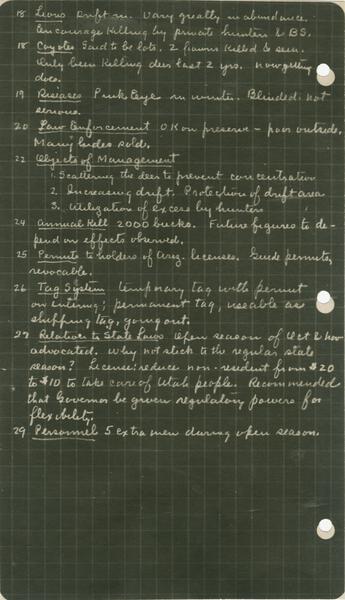 18 Lions Drift in. Vary greatly in abundance.
Encourage killing by private hunters & BS.
18 Coyotes Said to be lots. 2 fawns killed & seen.
Only been killing deer last 2 yrs. Now getting
does.
19 Diseases Pink Eye in winter. Blinded. Not
serious.
20 Law Enforcement OK on preserve - poor outside.
Many hides sold.
22 Objects of Management
1. Scattering the deer to prevent concentration
2. Increasing drift. Protection of drift area
3. Utilization of excess by hunters
24 Annual Kill 2000 bucks. Future figures to de-
pend on effects observed.
25 Permits to holders of Ariz. licenses. Guide permits,
revocable.
26 Tag System temporary tag with permit
on entering; permanent tag, useable as
shipping tag, going out.
27 Relation to State Laws Open season of Oct & Nov
advocated. Why not stick to the regular state
season? License: reduce non-resident from $20
to $10 to take care of Utah people. Recommended
that Governor be given regulatory powers for
flexibility.
29 Personnel 5 extra men during open season.